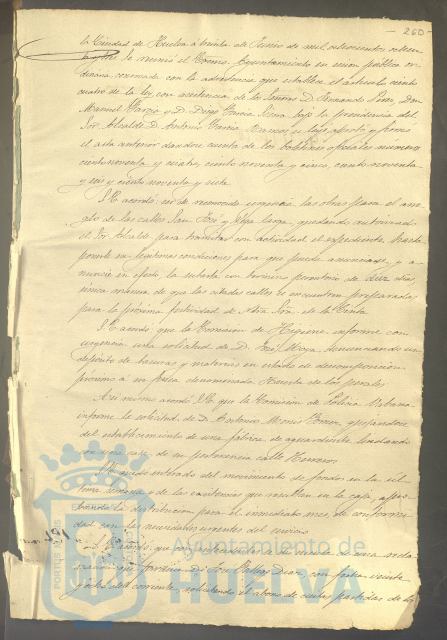 - 260 -
la Ciudad de Huelva á treinta de Junio de mil ochocientos ochenta
y tres se reunió el Excmo. Ayuntamiento en sesión pública or-
dinaria convocada con la advertencia que establece el artículo ciento
cuatro de la ley con asistencia de los Señores D. Fernando Don
Manuel García y D. Diego García bajo la presidencia del
Sor. Alcalde D. Antonio García se leyó aprobó y firmó
el acta anterior dandose cuenta de los boletines oficiales números
ciento noventa y cuatro, ciento noventa y cinco, ciento noventa
y seis y ciento noventa y siete.
Se acordó ser de reconocida urgencia las obras para el arre-
glo de las calles San José y larga, quedando autorizado
el Sor. Alcalde para tramitar con actividad el expediente, hasta
ponerlo en legítimas condiciones para que pueda anunciarse, y a-
nuncie en efecto la subasta con término perentorio de diez días,
única manera de que las citadas calles se encuentren preparadas
para la próxima festividad de Ntra. Sra. de la Cinta.
Se acordó que la Comisión de Higiene informe con
urgencia una solicitud de D. José Moya, denunciando un
depósito de basuras y materias en estado de descomposición
próximo a su finca denominada Huerta de los perales.
Así mismo acordó S.E. que la Comisión de Policía Urbana
informe la solicitud de D. Antonio quejándose
del establecimiento de una fábrica de aguardiente lindando
con una casa de su pertenencia calle Herrero.
enterado del movimiento de fondos en la úl-
tima semana y de las existencias que resultan en la caja, apro-
bando la distribución para el inmediato mes de conformi-
dad con las necesidades urgentes del servicio.
Se acordó que pase
D. José con fecha veinte
y del corriente, solicitando el abono de ciertas partidas de la
Ayuntamiento de
HUELVA
PORTUS